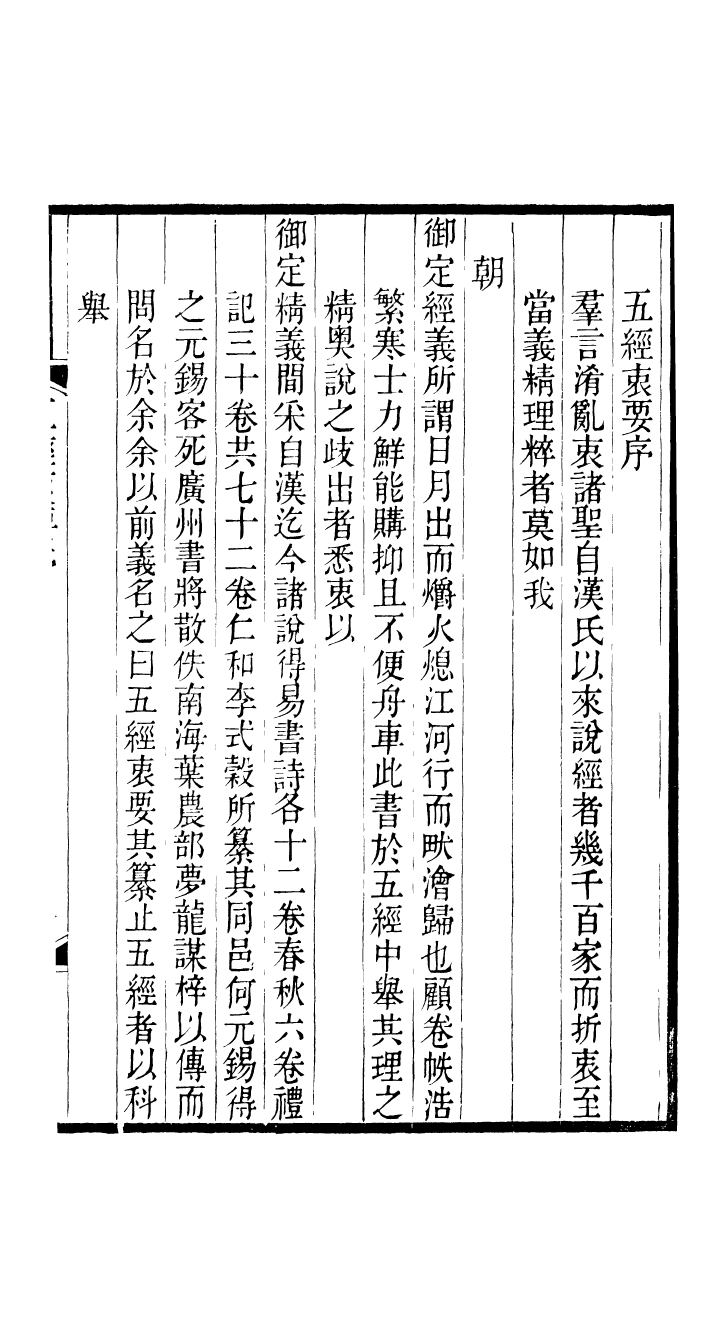 五經衷要序
羣言淆亂衷諸聖自漢氏以來說經者幾千百家而折衷至
當義精理粹者莫如我
朝
御定經義所謂日月出而爝火熄江河行而畎澮歸也顧卷帙浩
繁寒士力鮮能購抑且不便舟車此書於五經中舉其理之
精奧說之歧出者悉衷以
御定精義間采自漢迄今諸說得易書詩各十二卷春秋六卷禮
記三十卷共七十二卷仁和李式穀所纂其同邑何元錫得
之元錫客死廣州書將散佚南海葉農部夢龍謀梓以傳而
問名於余余以前義名之曰五經衷要其纂止五經者以科
舉